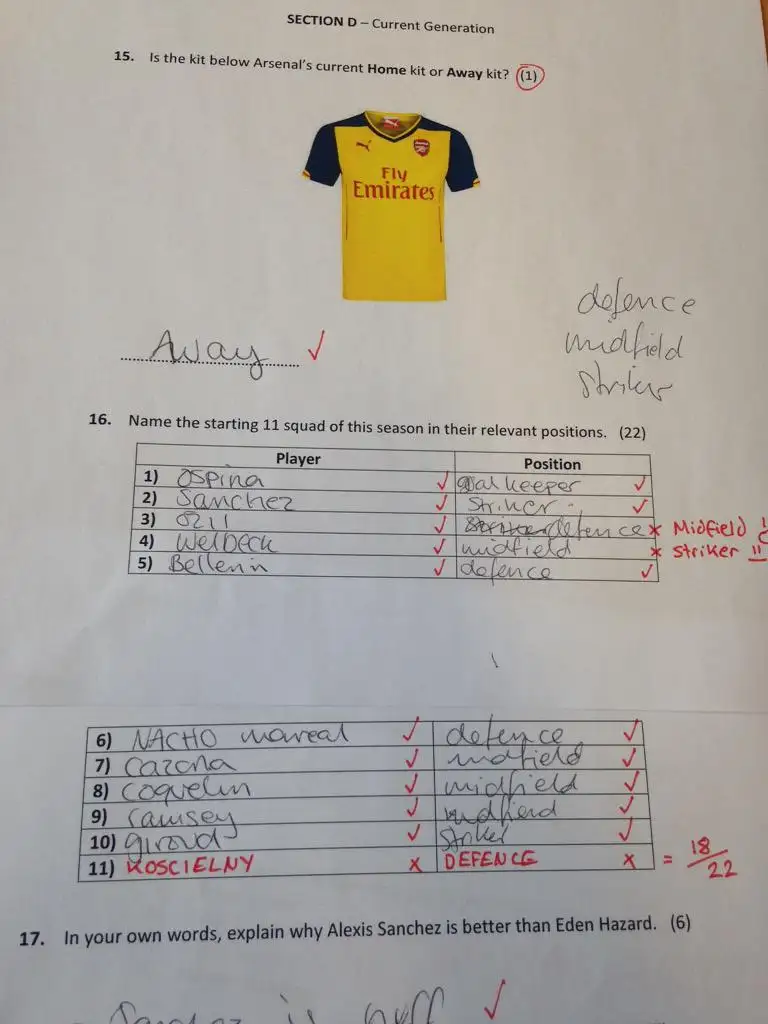 SECTION D – Current Generation
15. Is the kit below Arsenal's current Home kit or Away kit? (1)
Fly
Emirates
defence
midfield
striker
Away ✓
16. Name the starting 11 squad of this season in their relevant positions. (22)
Player Position
1) Ospina ✓ goalkeeper ✓
2) Sanchez ✓ striker ✓
3) Ozil ✓ defence x Midfield !
4) Welbeck ✓ midfield x striker !!
5) Bellerin ✓ defence ✓
6) NACHO monreal ✓ defence ✓
7) Cazorla ✓ midfield ✓
8) coquelin ✓ midfield ✓
9) ramsey ✓ midfield ✓
10) giroud ✓ striker ✓
11) KOSCIELNY x DEFENCE x = 18/22
17. In your own words, explain why Alexis Sanchez is better than Eden Hazard. (6)
Sanchez is buff ✓